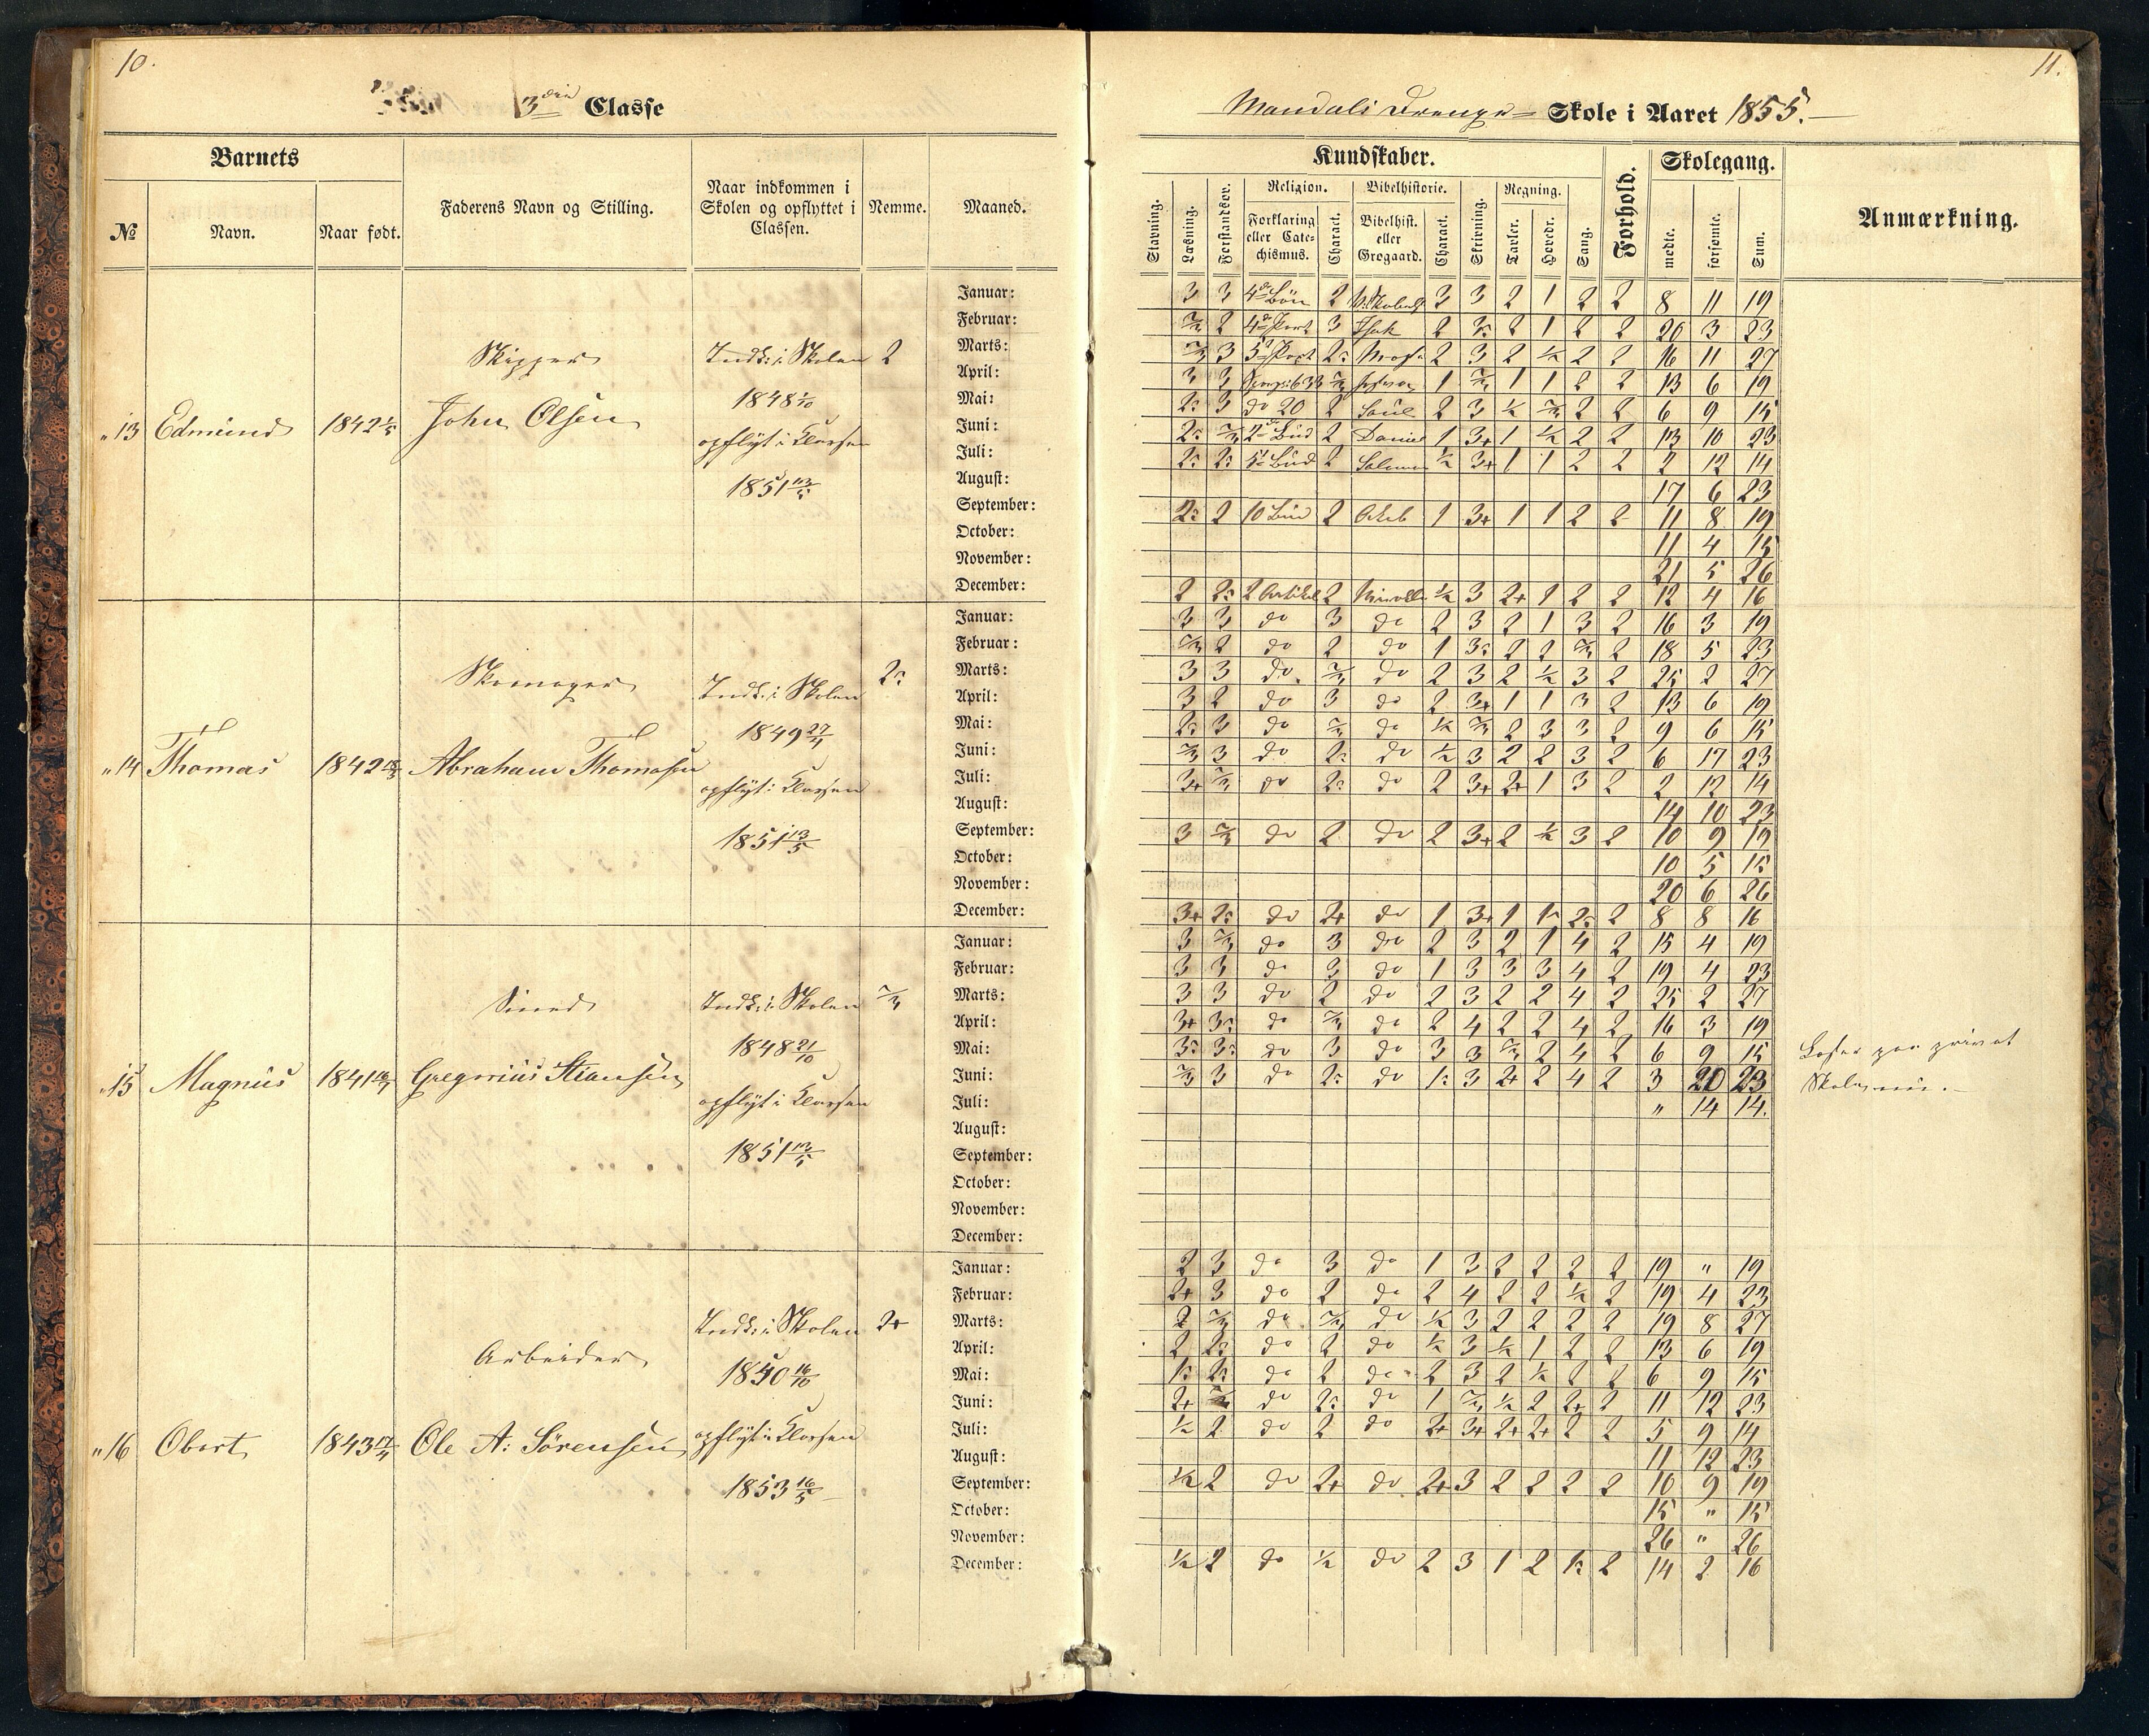 10.
3die Classe
Barnets
№
Navn.
Naar født.
Faderens Navn og Stilling.
Naar indkommen i
Skolen og opflyttet i
Classen.
Nemme.
Maaned.
"13 Edmund 1842
Skipper
John Olsen
Indk: i Skolen 2
1848
opflyt i Klassen
1851 13/5
Januar:
Februar:
Marts:
April:
Mai:
Juni:
Juli:
August:
September:
October:
November:
December:
"14 Thomas 1842
Skomager
Abraham Thomasen
Indk: i Skolen
1849 27/4
opflyt i Klassen
1851 13/5
Januar:
Februar:
Marts:
April:
Mai:
Juni:
Juli:
August:
September:
October:
November:
December:
"15 Magnus 1841
Smed
Gregorius Stiansen
Indk: i Skolen
1848 21/10
opflyt i Klassen
1851 13/5
Januar:
Februar:
Marts:
April:
Mai:
Juni:
Juli:
August:
September:
October:
November:
December:
"16 Obert 1843 17/4
Arbeider
Ole A: Sörensen
Indk: i Skolen 2+
1850 16/10
opflyt i Klassen
1853 16/5
Januar:
Februar:
Marts:
April:
Mai:
Juni:
Juli:
August:
September:
October:
November:
December:
11.
Mandals Drenge= Skole i Aaret 1855.
Kundskaber.
Forhold.
Skolegang.
Anmærkning.
Stavning.
Læsning.
Forstandsøv.
Religion.
Forklaring
eller Cate=
chismus.
Charact.
Bibelhistorie.
Bibelhist.
eller
Grøgaard.
Charact.
Skrivning.
Regning.
Tavler.
Hovedr.
Sang.
mødte.
forsømte.
Sum.
3 3 2 3 3 2 1 2 2 8 11 19
2 3 Isak 2 2 1 2 2 20 3 23
3 2 3 2 1/2 2 2 16 11 27
3 3 1 1 1 2 2 13 6 19
3 do 20 2 Saul 2 3 1/2 2 2 6 9 15
2 Daniel 1 3+ 1 1/2 2 2 13 10 23
2 1/2 3+ 1 1 2 2 2 12 14
17 6 23
2 2 1 3+ 1 1 2 2 11 8 19
11 4 15
21 5 26
2 2 Artikel 2 1/2 3 2+ 1 2 2 12 4 16
3 3 do 3 do 2 3 2 1 3 2 16 3 19
2 do 2 do 1 2 2 2 18 5 23
3 3 do do 2 3 2 1/2 3 2 25 2 27
3 2 do 3 do 2 3+ 1 1 3 2 13 6 19
3 do do 1/2 2 3 3 2 9 6 15
3 do do 1/2 3 2 2 3 2 6 17 23
3+ do do 2 3+ 2+ 1 3 2 2 12 14
14 10 23
3 do 2 do 2 3+ 2 1/2 3 2 10 9 19
10 5 15
20 6 26
3+ do 2+ do 1 3+ 1 2 8 8 16
3 do 3 do 2 3 2 1 4 2 15 4 19
3 3 do 3 do 1 3 3 3 4 2 19 4 23
3 3 do 2 do 2 3 2 2 4 2 25 2 27
3+ do do 2 4 2 2 4 2 16 3 19
do 3 do 3 3 2 4 2 6 9 15
3 do do 3 2+ 2 4 2 3 20 23
" 14 14.
privat
2 3 do 3 do 1 3 2 2 2 2 19 " 19
2+ 3 do 2 do 2 4 2 2 1/2 2 19 4 23
2 do do 1/2 3 2 2 2 2 19 8 27
2 do 2 do 1/2 3 1/2 1 2 2 13 6 19
do 2 do 2 3 2 1/2 2 2 6 9 15
2+ do do 1 1/2 2 2+ 2 11 12 23
1/2 2 do 2 do 2+ 3+ 2+ 2+ 2 2 5 9 14
11 12 23
1/2 2 do 2+ do 2+ 3 2 2 2 2 10 9 19
15 " 15
26 " 26
1/2 2 do 1/2 do 2 3 1 2 2 14 2 16